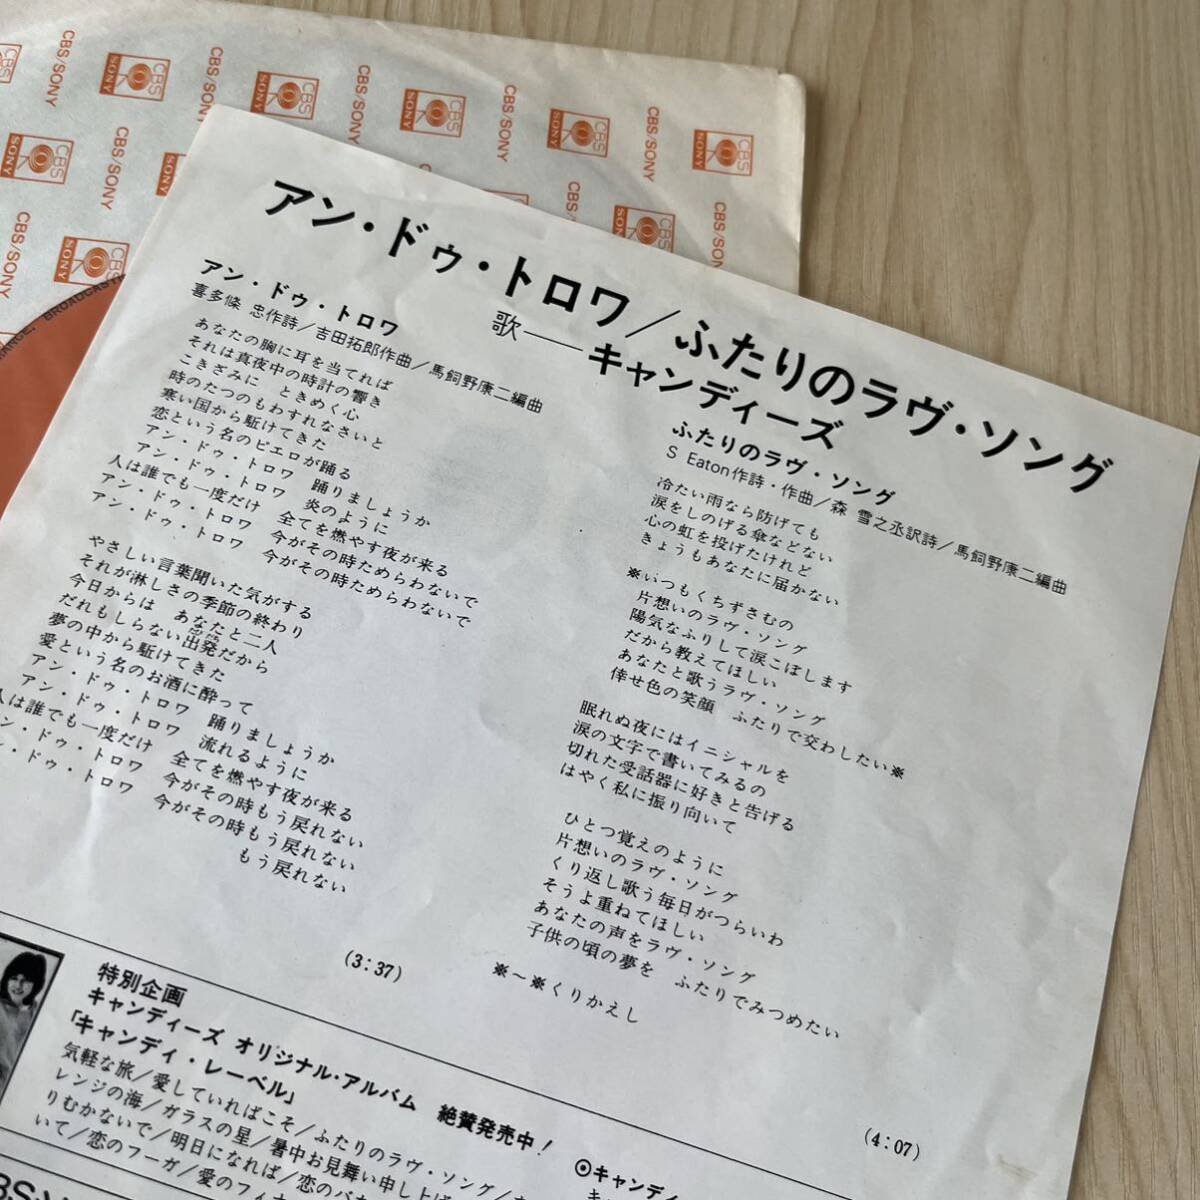 CBS/SONY
アン・ドゥ・トロワ/ふたりのラヴ・ソング
歌──キャンディーズ
アン・ドゥ・トロワ
喜多條 忠作詩/吉田拓郎作曲/馬飼野康二編曲
あなたの胸に耳を当てれば
それは真夜中の時計の響き
こきざみに ときめく心
時のたつのもわすれなさいと
寒い国から駈けてきた
恋という名のピエロが踊る
アン・ドゥ・トロワ 踊りましょうか
アン・ドゥ・トロワ 炎のように
人は誰でも一度だけ 全てを燃やす夜が来る
アン・ドゥ・トロワ 今がその時ためらわないで
アン・ドゥ・トロワ 今がその時ためらわないで
やさしい言葉聞いた気がする
それが淋しさの季節の終わり
今日からは あなたと二人
だれもしらない出発だから
夢の中から駈けてきた
愛という名のお酒に酔って
アン・ドゥ・トロワ 踊りましょうか
アン・ドゥ・トロワ 流れるように
人は誰でも一度だけ 全てを燃やす夜が来る
ン・ドゥ・トロワ 今がその時もう戻れない
・ドゥ・トロワ 今がその時もう戻れない
もう戻れない
(3:37)
ふたりのラヴ・ソング
S Eaton作詩・作曲/森 雪之丞訳詩/馬飼野康二編曲
冷たい雨なら防げても
涙をしのげる傘などない
心の虹を投げたけれど
きょうもあなたに届かない
※いつもくちずさむの
片想いのラヴ・ソング
陽気なふりして涙こぼします
だから教えてほしい
あなたと歌うラヴ・ソング
倖せ色の笑顔 ふたりで交わしたい※
眠れぬ夜にはイニシャルを
涙の文字で書いてみるの
切れた受話器に好きと告げる
はやく私に振り向いて
ひとつ覚えのように
片想いのラヴ・ソング
くり返し歌う毎日がつらいわ
そうよ重ねてほしい
あなたの声をラヴ・ソング
子供の頃の夢を ふたりでみつめたい
※〜※くりかえし
(4:07)
特別企画
キャンディーズ オリジナル・アルバム 絶賛発売中!
「キャンディ・レーベル」
気軽な旅/愛していればこそ/ふたりのラヴ・ソング/
レンジの海/ガラスの星/暑中お見舞い申し上げ
りむかないで/明日になれば/恋のバカ
いて/恋のフーガ/愛のフィナ
◎キャンディ